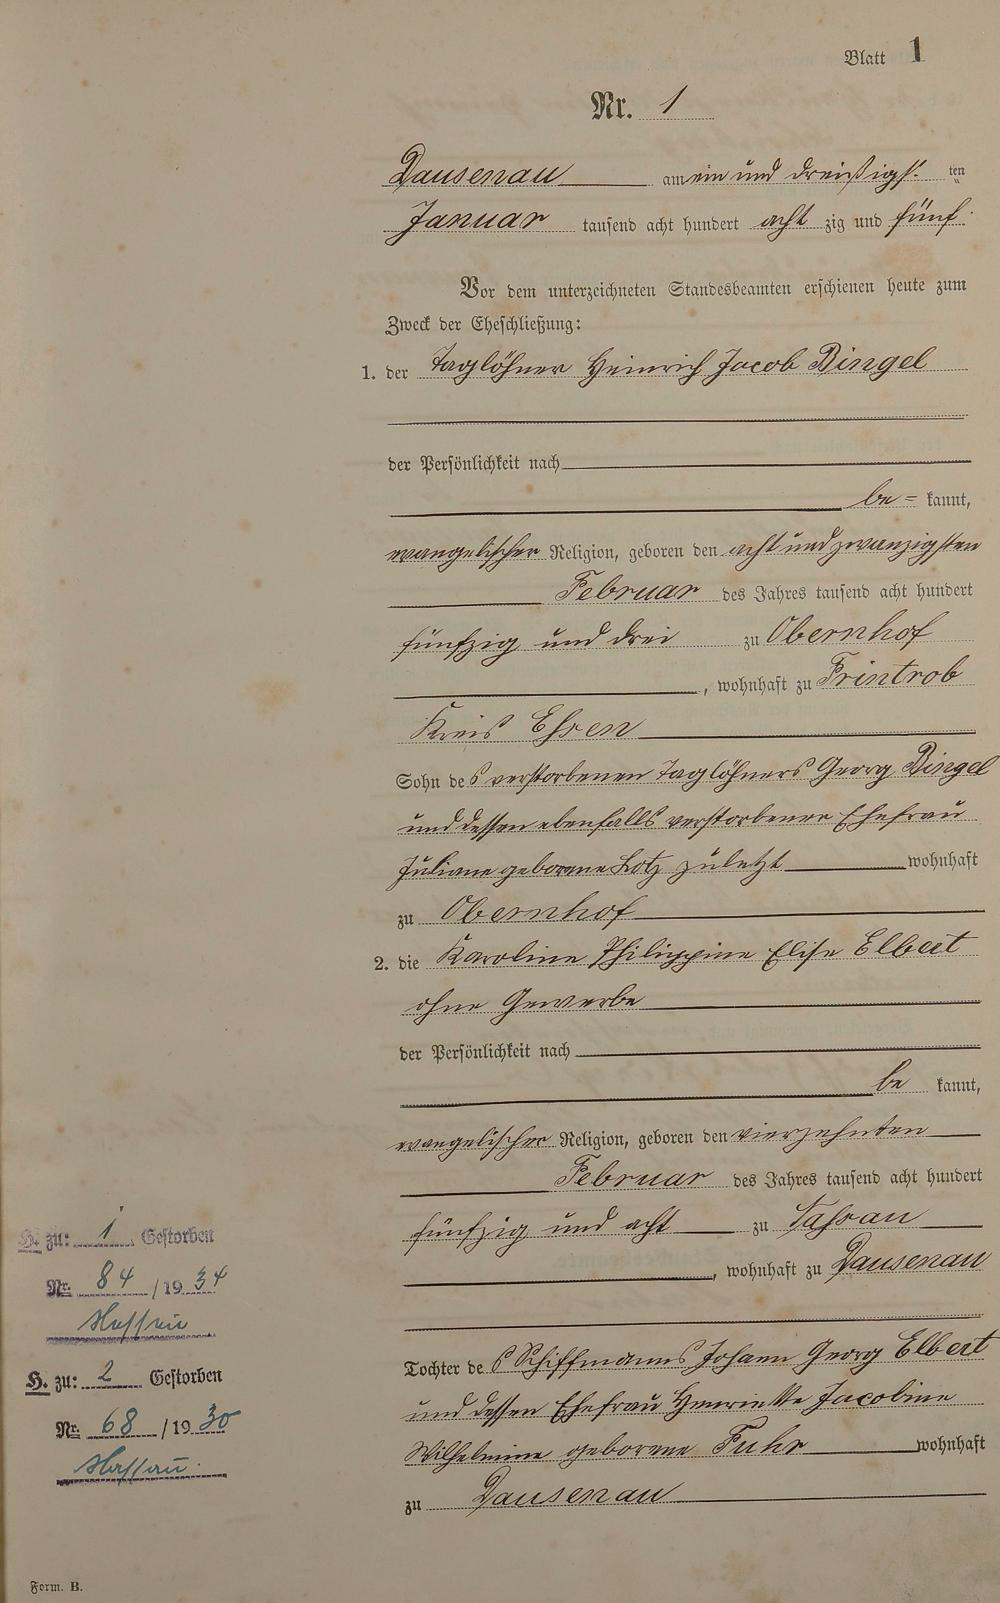 Blatt 1
Nr. 1
Dausenau am ein und dreißigst. ten
Januar tausend acht hundert acht zig und fünf.
Vor dem unterzeichneten Standesbeamten erschienen heute zum
Zweck der Eheschließung:
1. der Taglöhner Heinrich Jacob Bingel
der Persönlichkeit nach
be = kannt,
evangelischer Religion, geboren den acht und zwanzigsten
Februar des Jahres tausend acht hundert
fünfzig und drei zu Obernhof
, wohnhaft zu Frintrob
Kreis Essen
Sohn des verstorbenen Taglöhners Georg Bingel
und dessen ebenfalls verstorbener Ehefrau
Juliane geborene Lotz zuletzt wohnhaft
zu Obernhof
2. die Karoline Philippine Elise Elbert
ohne Gewerbe
der Persönlichkeit nach
be kannt,
evangelischer Religion, geboren den vierzehnten
Februar des Jahres tausend acht hundert
fünfzig und acht zu Nassau
, wohnhaft zu Dausenau
Tochter des Schiffmanns Johann Georg Elbert
und dessen Ehefrau Henriette Jacobine
Wilhelmine geborene Fuhr wohnhaft
zu Dausenau
H. zu: 1 Gestorben
Nr. 84 / 19 34
H. zu: 2 Gestorben
Nr. 68 / 19 30
Nassau.
Form. B.